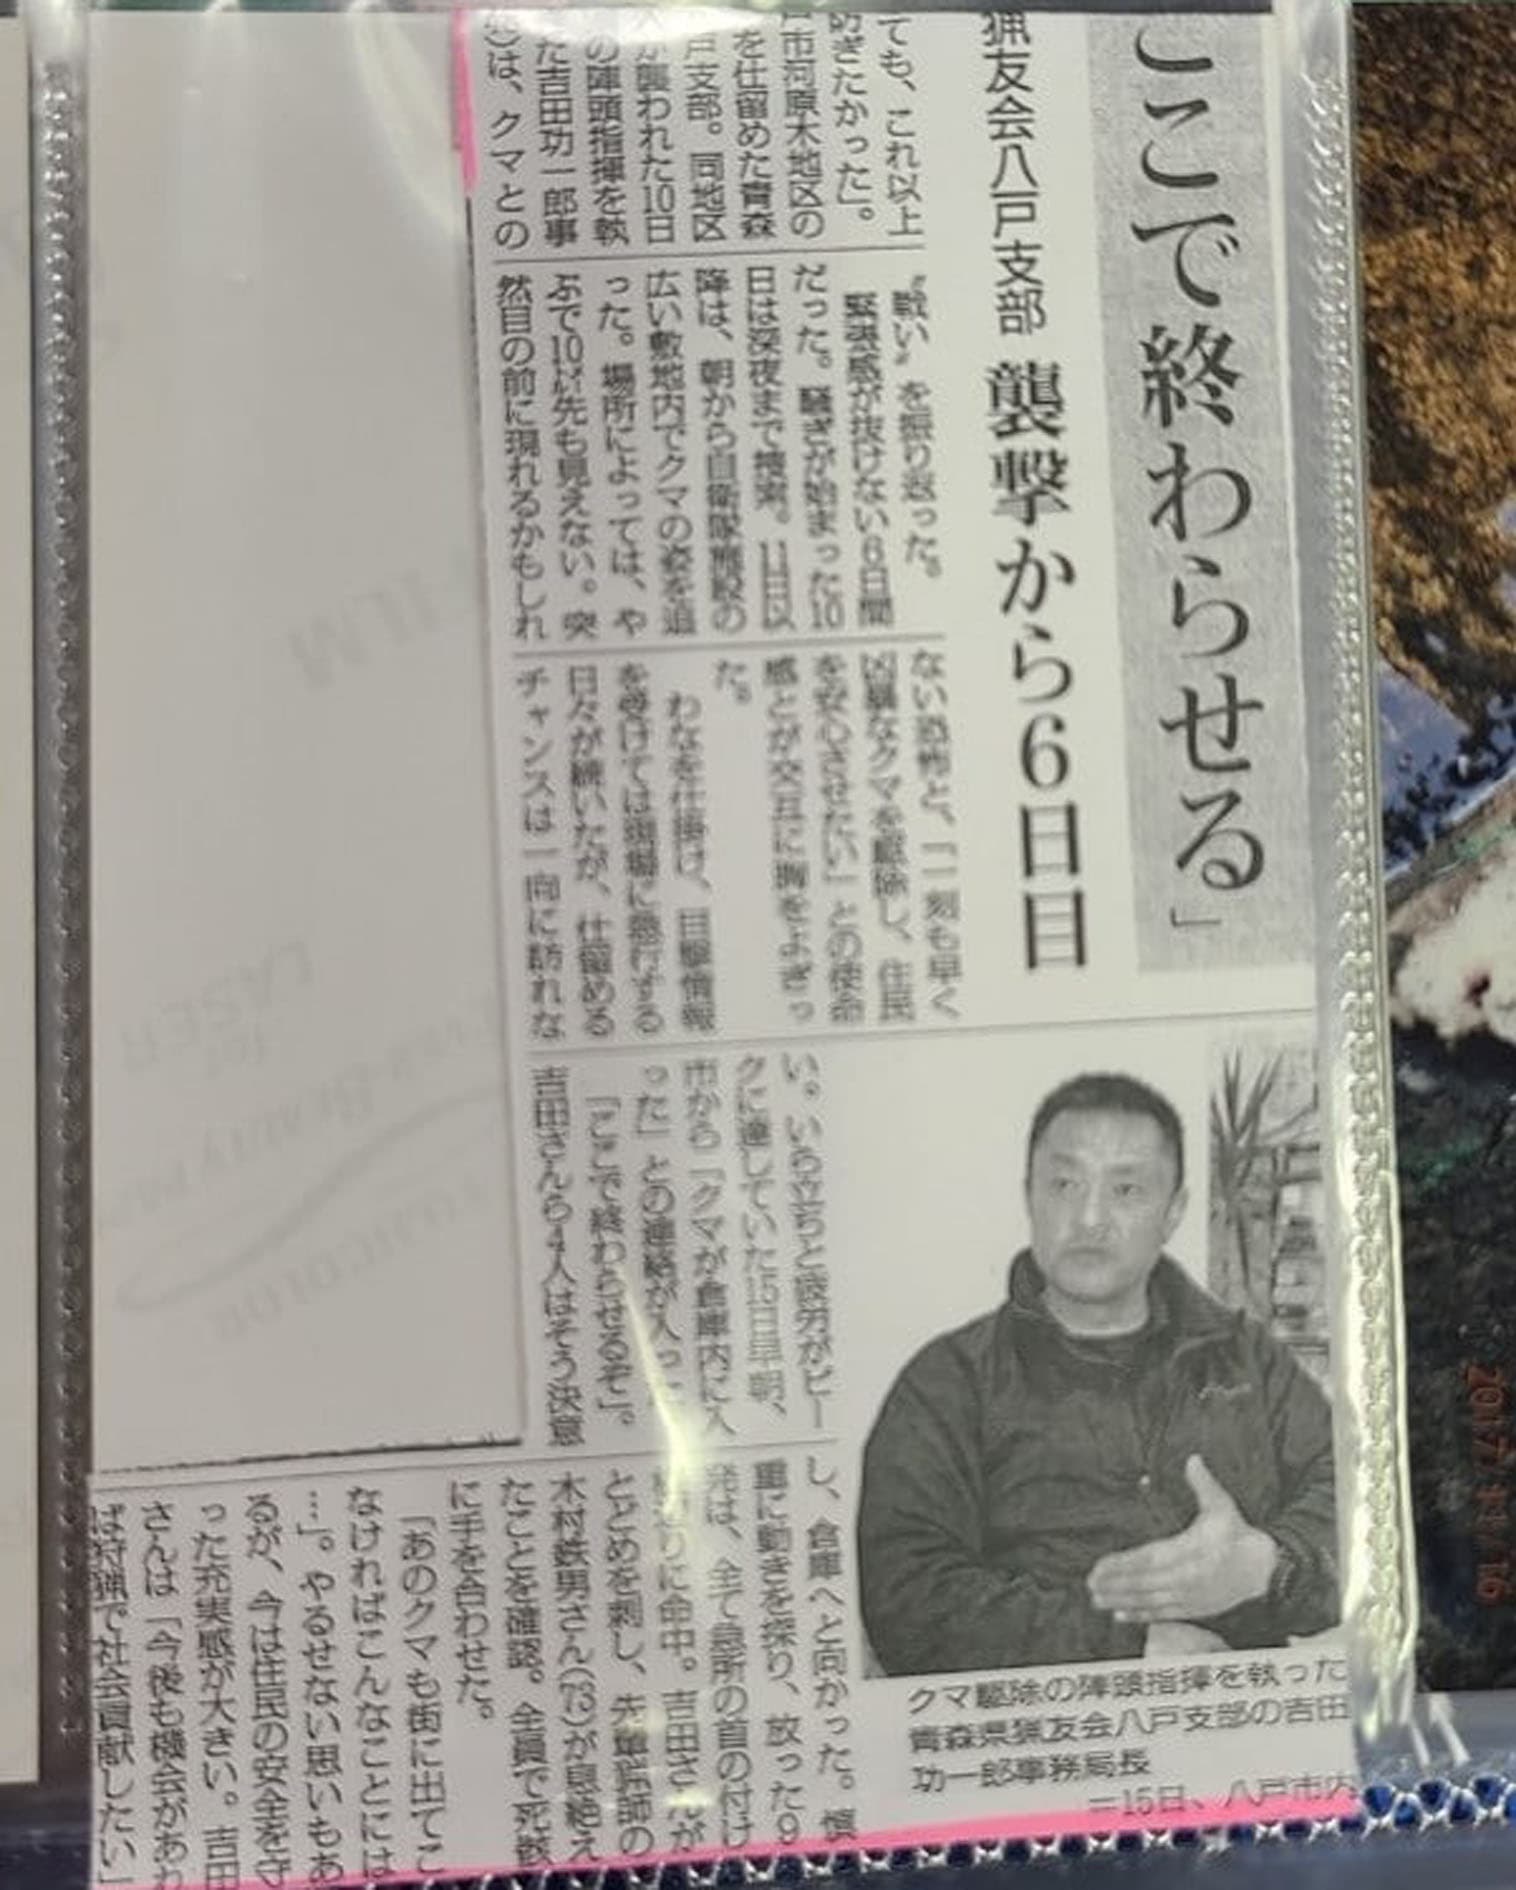 ここで終わらせる」
猟友会八戸支部 襲撃から6日目
ても、これ以上
防ぎたかった」。
市河原木地区の
を仕留めた青森
戸支部。同地区
が襲われた10日
の陣頭指揮を執
た吉田功一郎事
は、クマとの
〝戦い〟を振り返った。
緊張感が抜けない6日間
だった。騒ぎが始まった10
日は深夜まで捜索。11日以
降は、朝から自衛隊施設の
広い敷地内でクマの姿を追
った。場所によっては、や
ぶで10㍍先も見えない。突
然目の前に現れるかもしれ
ない恐怖と、「一刻も早く
凶暴なクマを駆除し、住民
を安心させたい」との使命
感とが交互に胸をよぎっ
た。
わなを仕掛け、目撃情報
を受けては現場に急行する
日々が続いたが、仕留める
チャンスは一向に訪れな
い。いら立ちと疲労がピー
クに達していた15日早朝、
市から「クマが倉庫内に入
った」との連絡が入った
「ここで終わらせるぞ」。
吉田さんら4人はそう決意
し、倉庫へと向かった。慎
重に動きを探り、放った9
発は、全て急所の首の付け
に命中。吉田さんが
とどめを刺し、先輩猟師の
木村鉄男さん(73)が息絶え
たことを確認。全員で死骸
に手を合わせた。
「あのクマも街に出てこ
なければこんなことには
…」。やるせない思いもあ
るが、今は住民の安全を守
った充実感が大きい。吉田
さんは「今後も機会があれ
ば狩猟で社会貢献したい」
クマ駆除の陣頭指揮を執った
青森県猟友会八戸支部の吉田
功一郎事務局長
=15日、八戸市内
2017/11/16